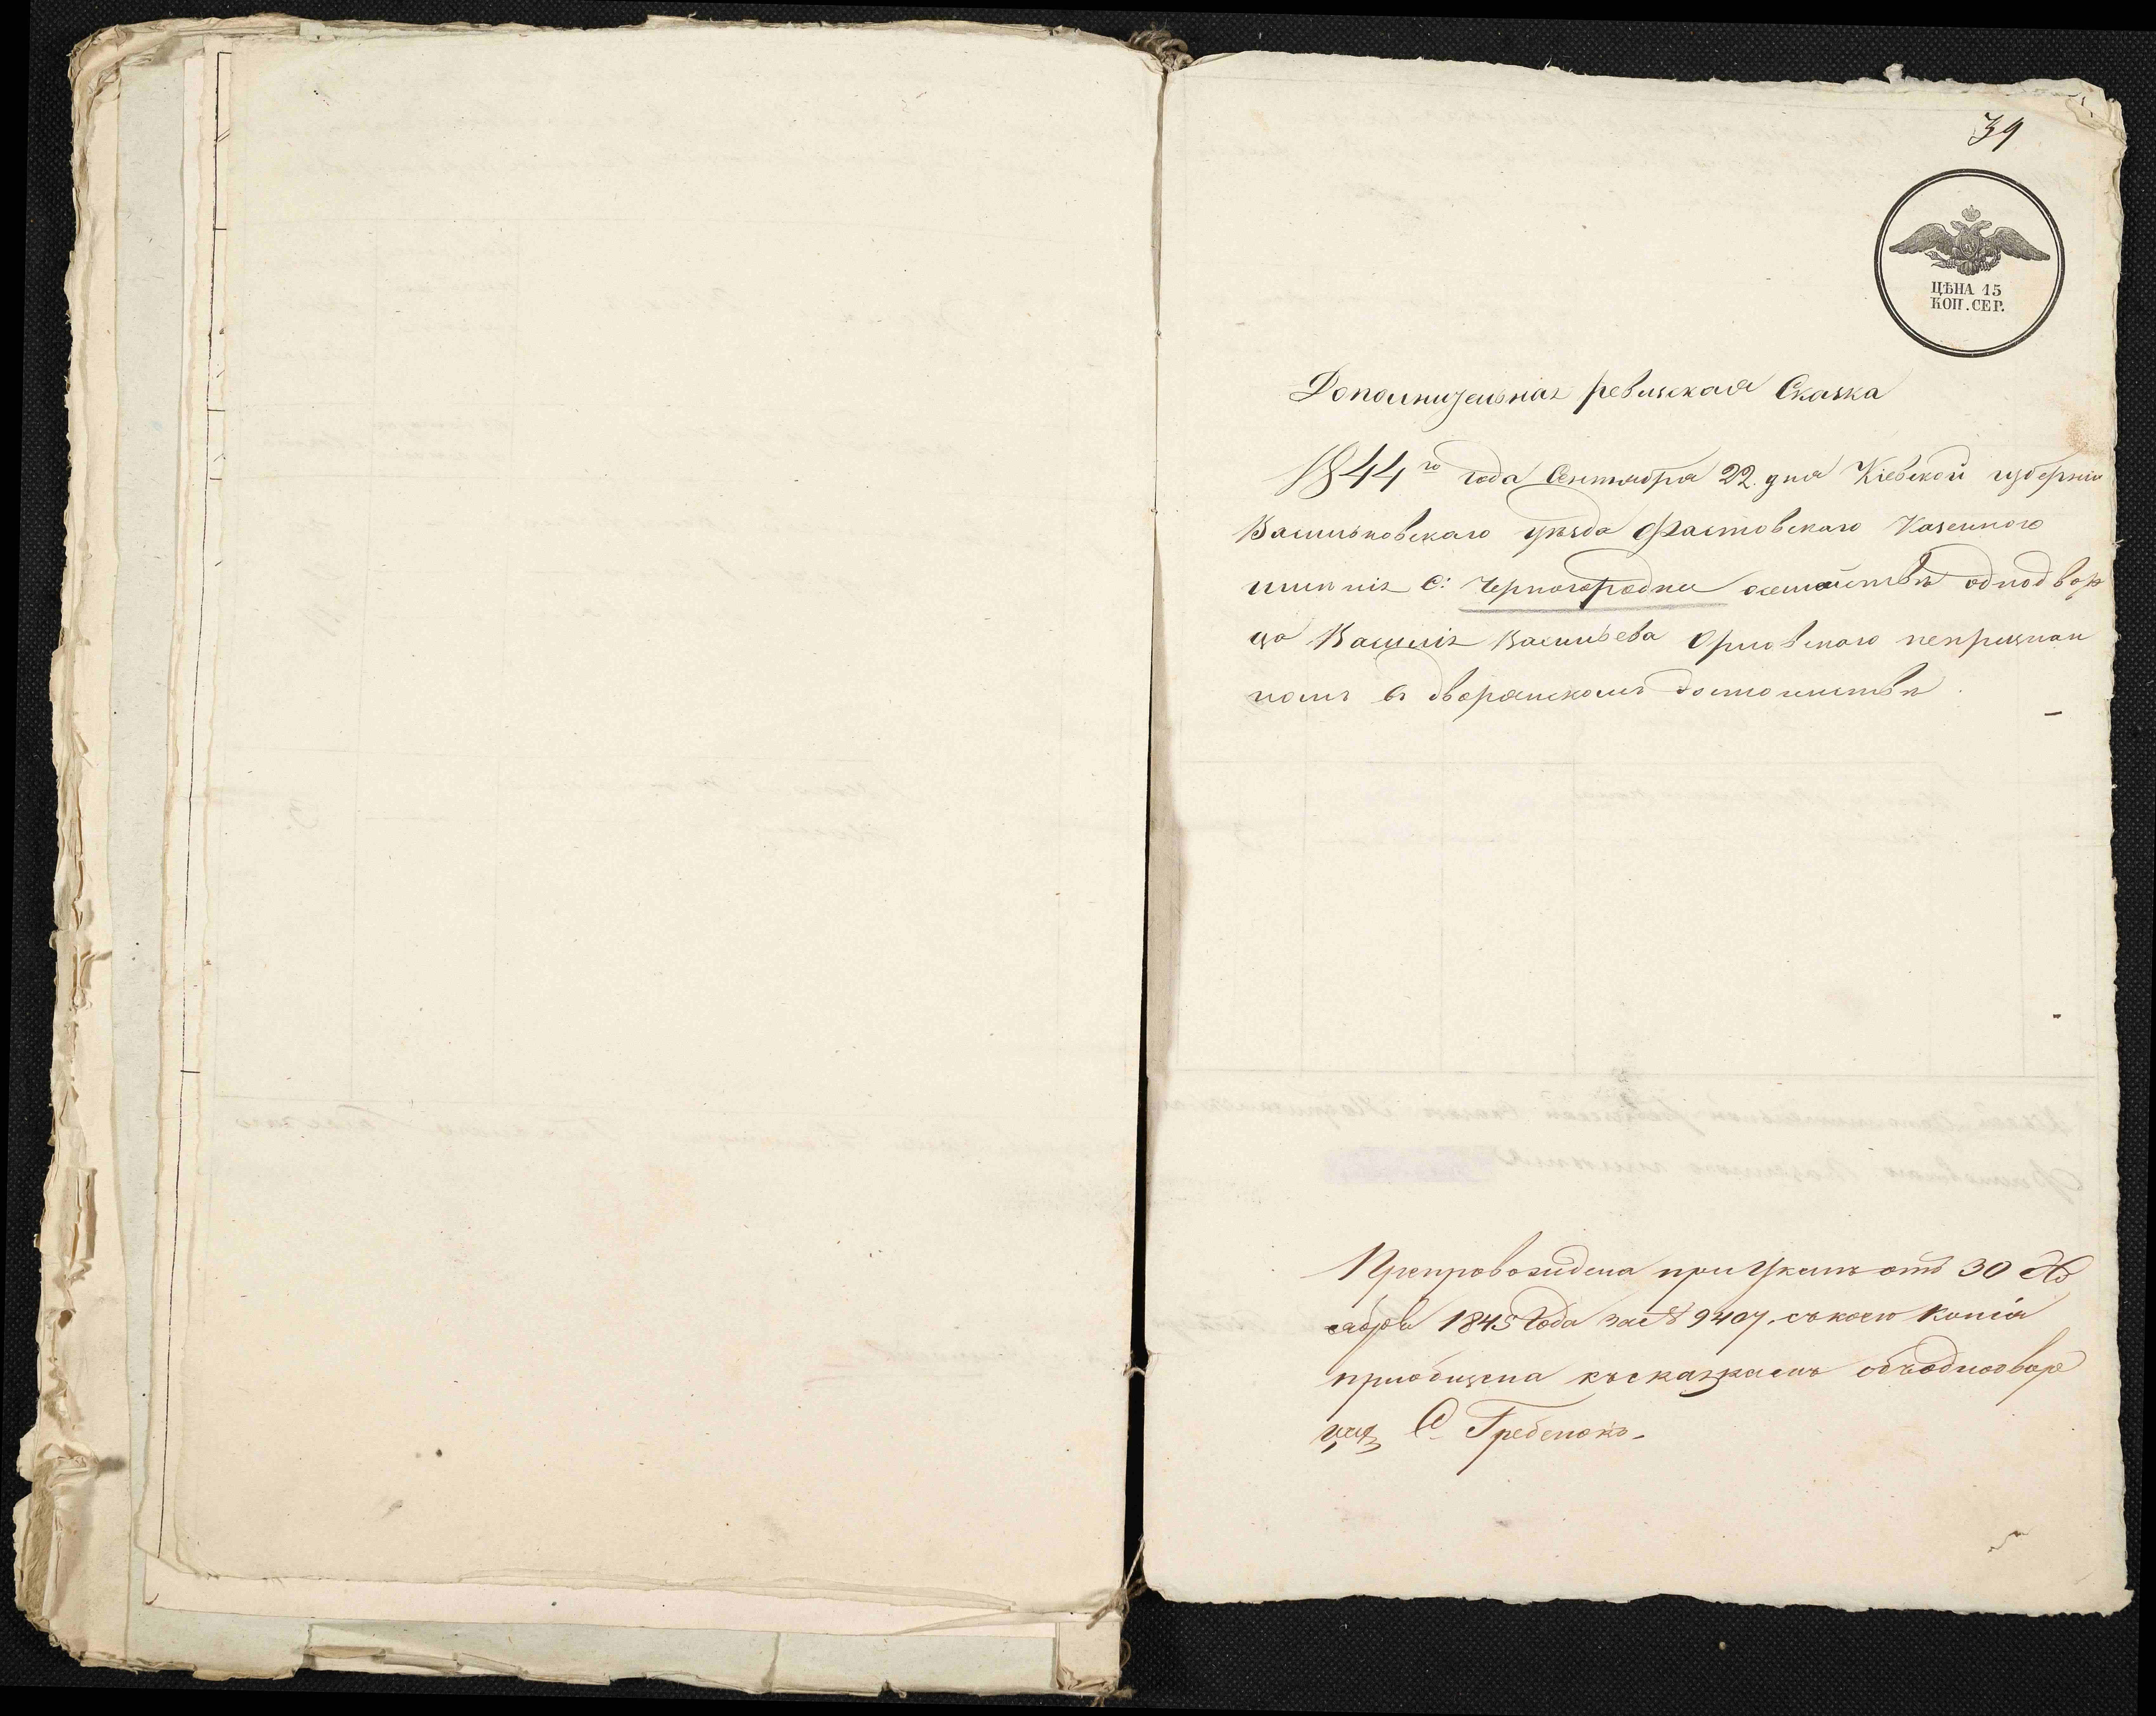 39
ЦѢНА 15
КОП. СЕР.
Дополнительная ревизская Сказка
1844го года Сентября 22. дня Кіевской губерніи
Васильковскаго уѣзда Фастовскаго Казенного
имѣнія С: Черногородки о семействѣ однодвор
ца Василія Васильева Орловского непризнан
номъ въ дворянскомъ достоинствѣ.
Препровождена при Указѣ отъ 30 Но
ября 1845 Года за № 9407. съ коего копія
приобщена къ сказкамъ объ однодвор
цахъ С. Гребенокъ.